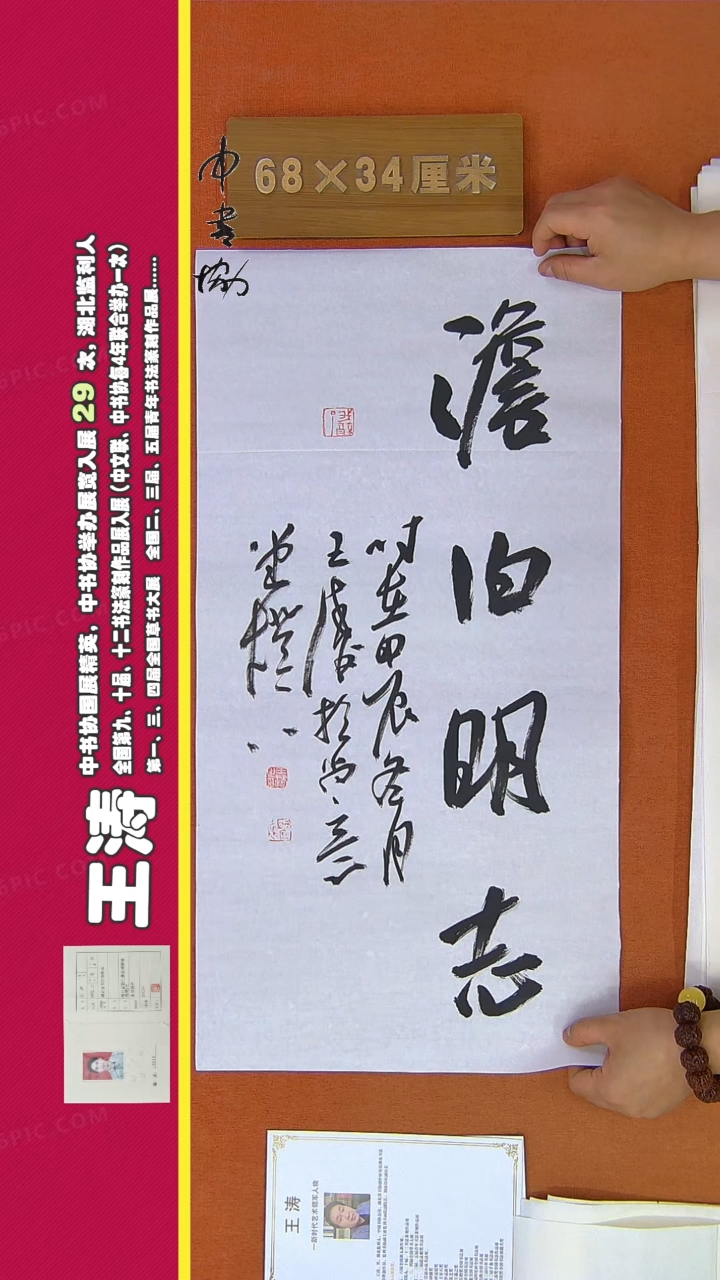 中书协
68×34厘米
澹泊明志
时在甲辰冬月
王涛于尚意
堂
王涛
中书协国展精英,中书协举办展览入展 29 次,湖北监利人
全国第九、十届、十二书法篆刻作品展入展(中文联、中书协每4年联合举办一次)
第一、三、四届全国草书大展 全国二、三届、五届青年书法篆刻作品展......
王 涛
—新时代艺术领军人物